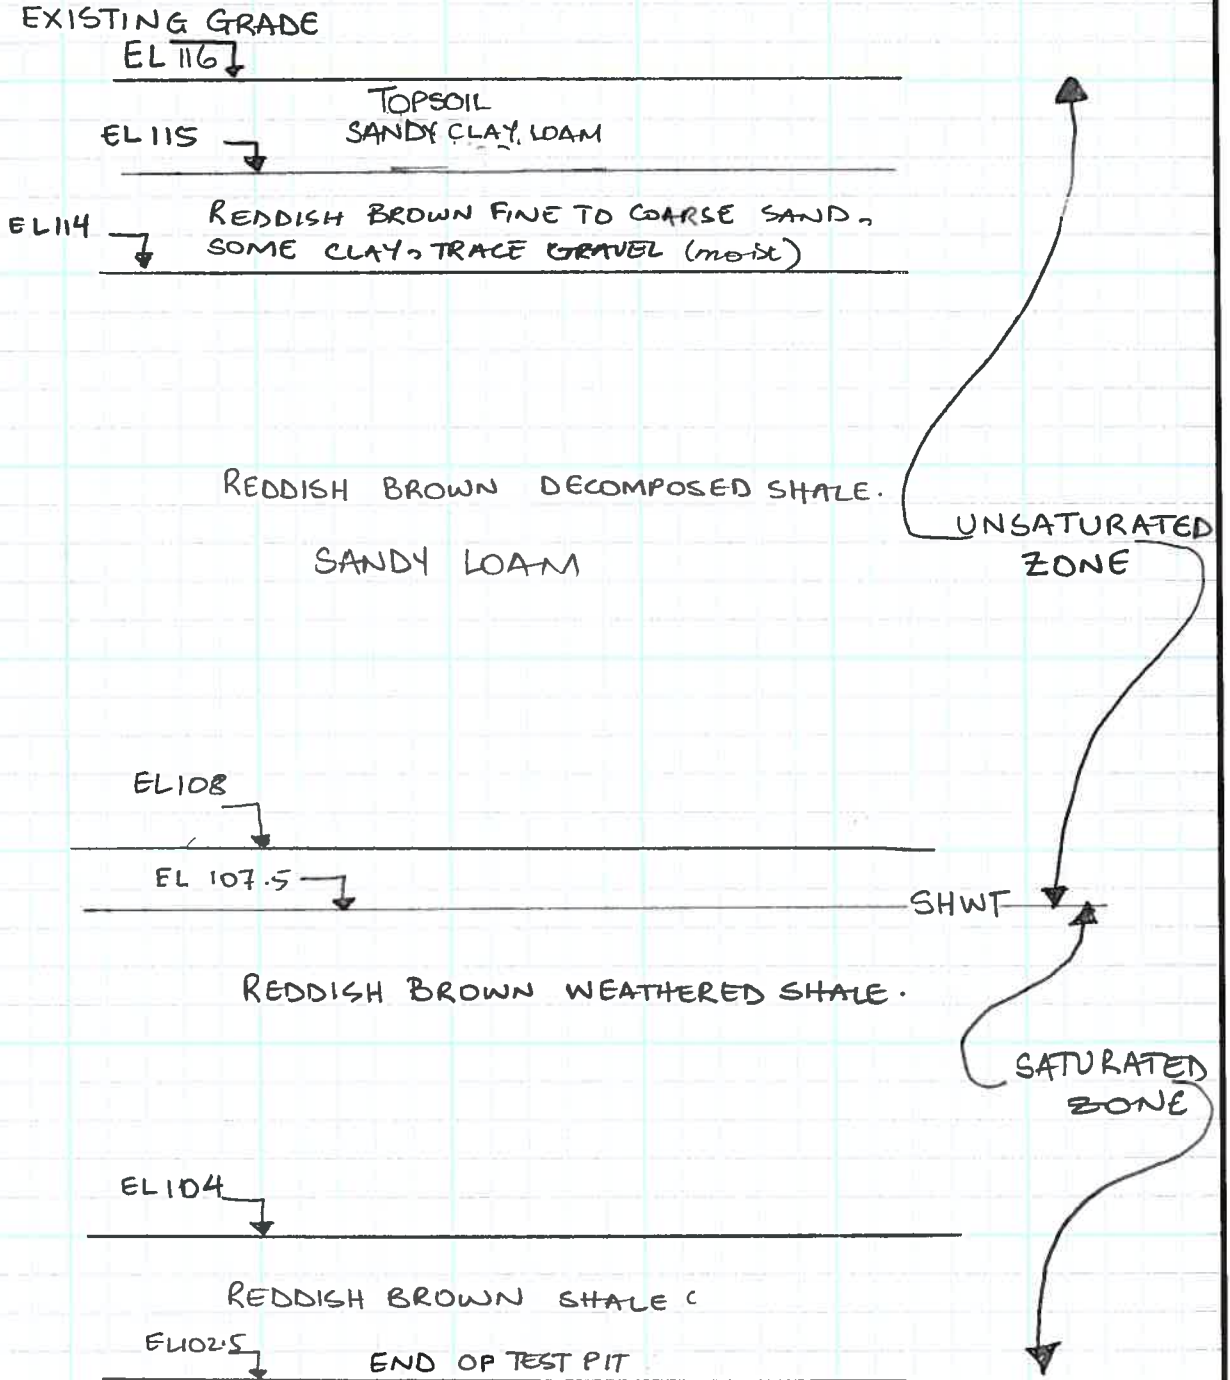 EXISTING GRADE
EL 116
TOPSOIL
EL 115
SANDY CLAY LOAM
EL114
REDDISH BROWN FINE TO COARSE SAND,
SOME CLAY, TRACE GRAVEL (moist)
REDDISH BROWN DECOMPOSED SHALE.
UNSATURATED
ZONE
SANDY LOAM
EL108
EL 107.5
SHWT
REDDISH BROWN WEATHERED SHALE.
SATURATED
ZONE
EL104
REDDISH BROWN SHALE
EL102.5
END OF TEST PIT